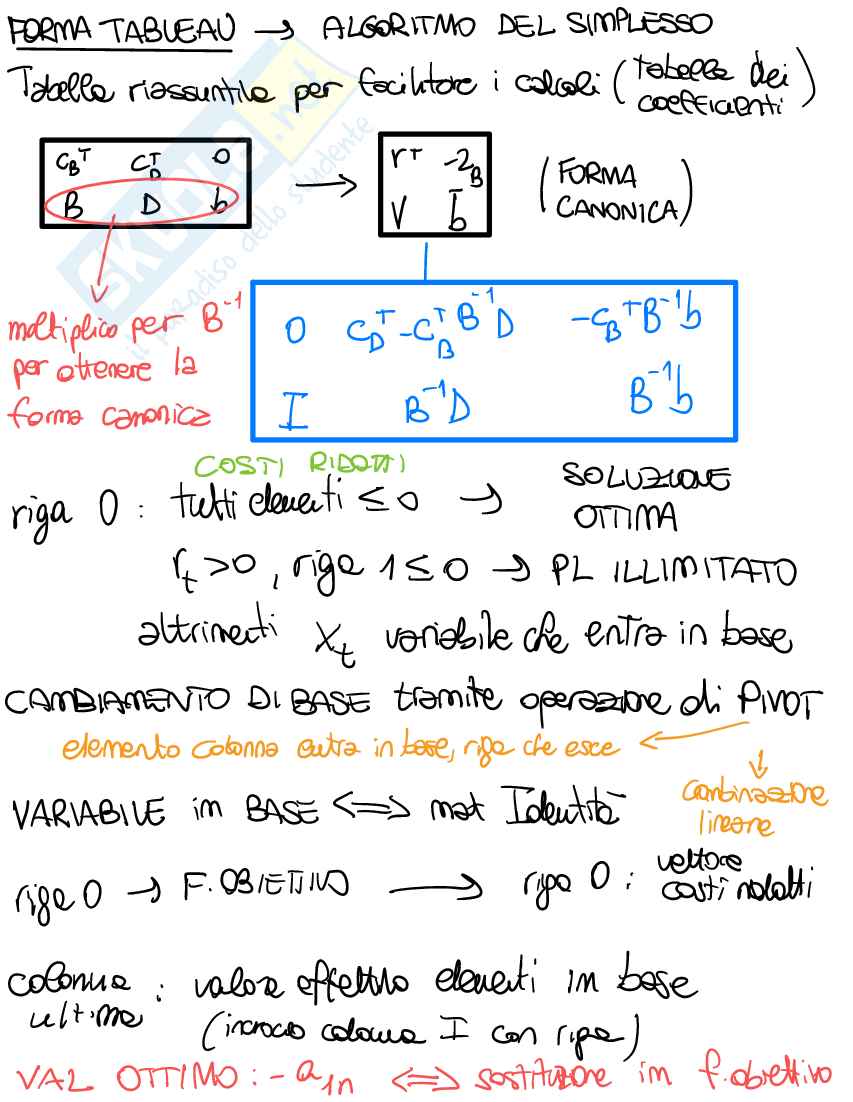 FORMA TABLEAU → ALGORITMO DEL SIMPLESSO
Tabella riassuntiva per facilitare i calcoli (tabella dei coefficienti)
C_B^T C_D^T 0
B D b
→
r^T -z_B
V b̄
(FORMA CANONICA)
moltiplico per B^-1
per ottenere la
forma canonica
0 C_D^T - C_B^T B^-1 D -C_B^T B^-1 b
I B^-1 D B^-1 b
COSTI RIDOTTI
riga 0 : tutti elementi ≤ 0 → SOLUZIONE OTTIMA
r_t > 0, riga 1 ≤ 0 → PL ILLIMITATO
altrimenti x_t variabile che entra in base
CAMBIAMENTO DI BASE tramite operazione di PIVOT
elemento colonna entra in base, riga che esce ←
↓
combinazione
lineare
VARIABILE in BASE <=> mat Identità
riga 0 → F. OBIETIVO → riga 0 : vettore costi ridotti
colonna ultima : valore effettivo elementi in base
(incrocio colonna I con riga)
VAL OTTIMO : - a_1n <=> sostituzione in f. obiettivo
SKUOLA.net
il paradiso dello studente